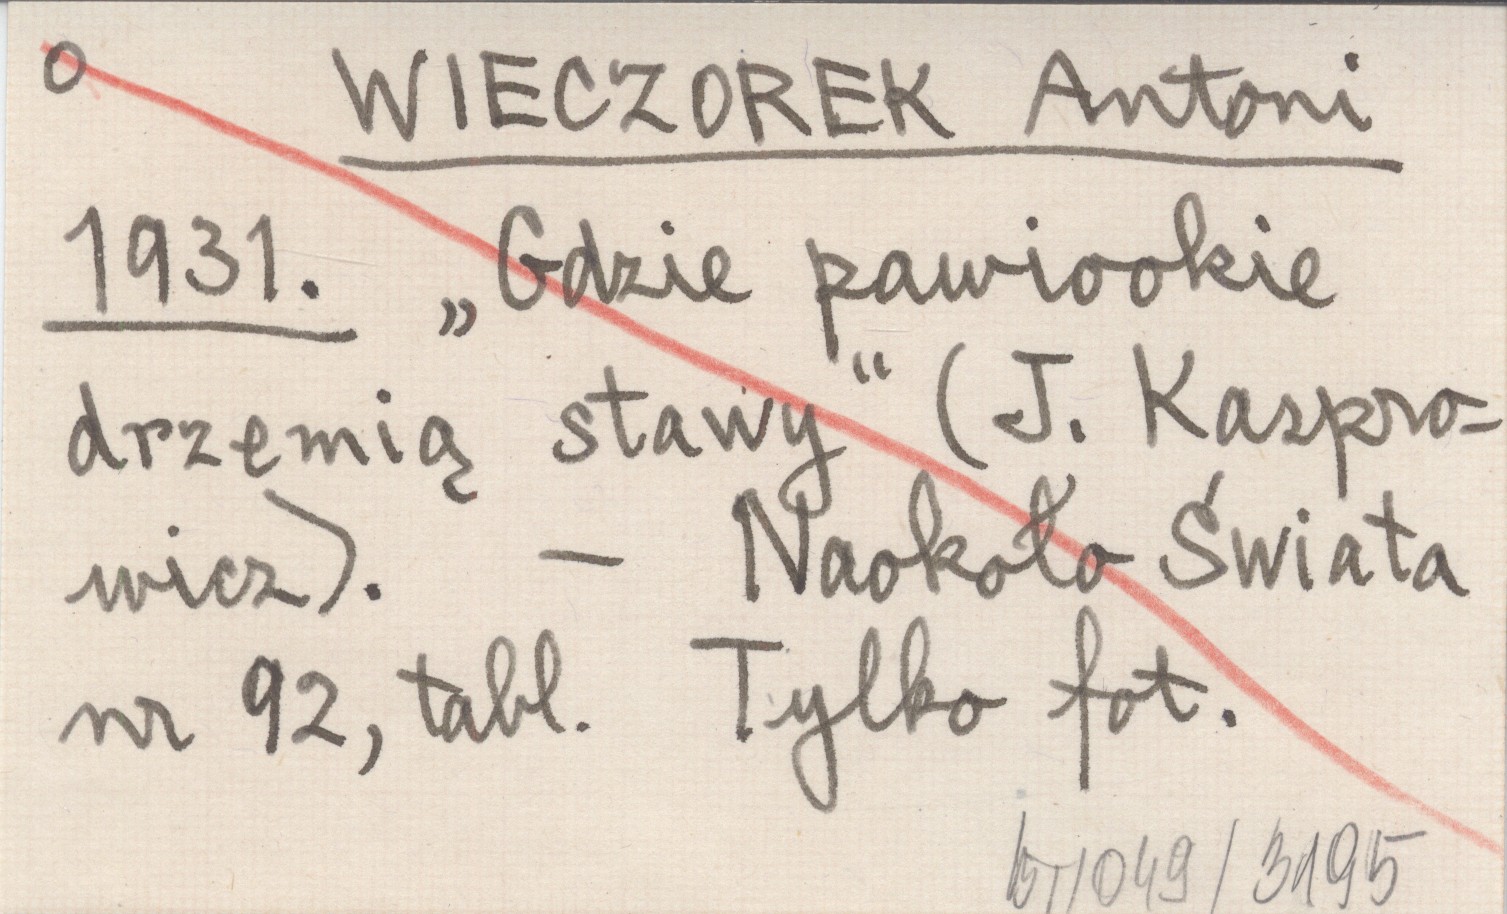 O WIECZOREK Antoni
1931. „Gdzie pawiookie
drzemią stawy“ (J. Kaspro-
wicz). — Naokoło Świata
nr 92, tabl. Tylko fot.
/049/3195